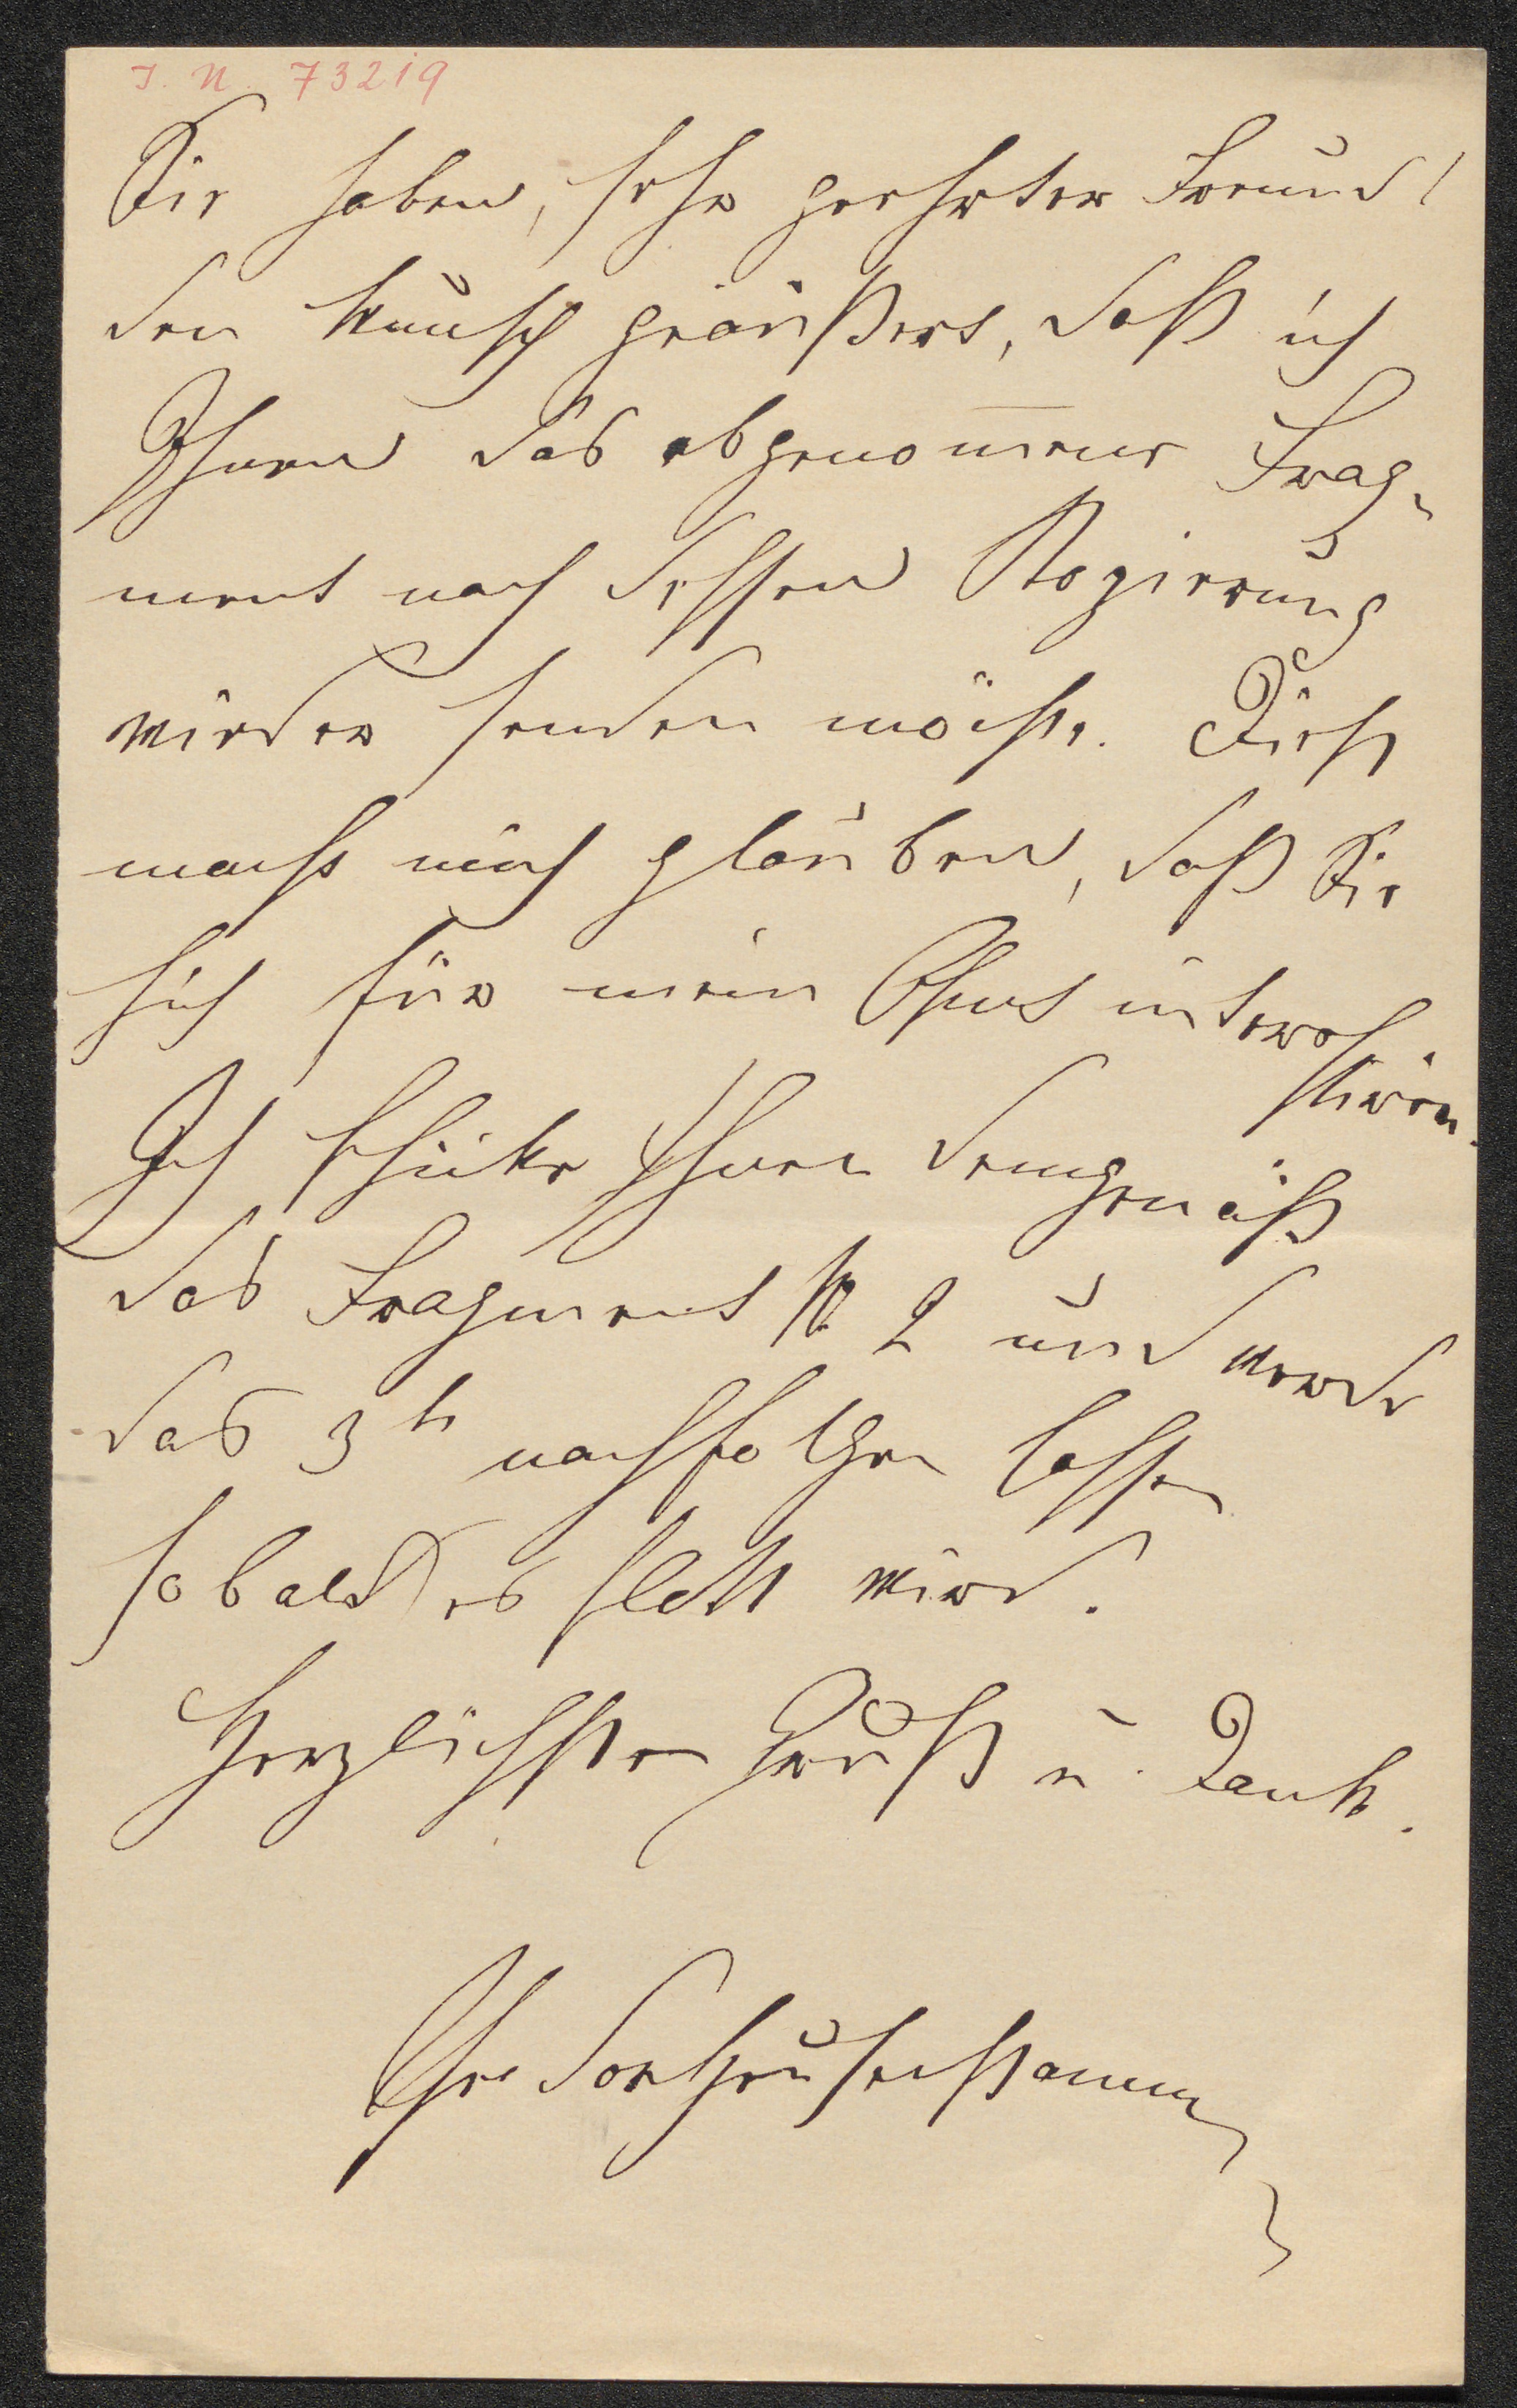 I. N. 73219
Sie haben, sehr geehrter Freund!
den Wunsch geäußert, daß ich
Ihnen das abgenom̅ene Frag-
ment nach dessen Kopirung
wieder senden möchte. Dieß
macht mich glauben, daß Sie
sich für mein Opus interes-
siren.
Ich schicke Ihnen demgemäß
das Fragment N 2 und werde
das 3te nachfolgen lassen
sobald es flott wird.
Herzlichsten Gruß u. Dank.
Ihr